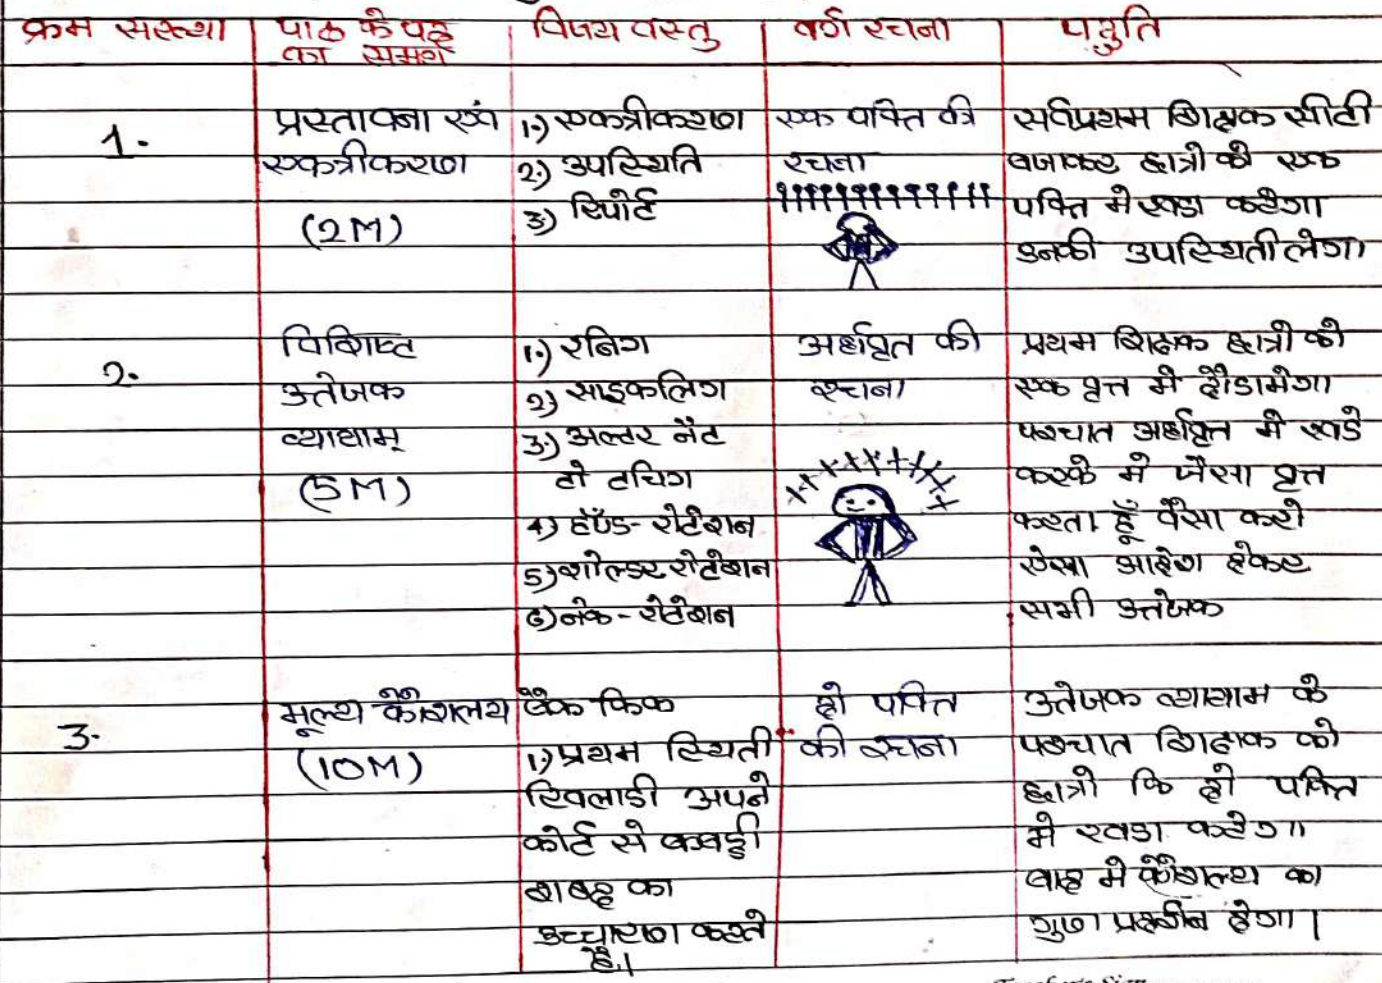 क्रम संख्या
पाठ के पद
का समय
विषय वस्तु
वर्ग रचना
पद्धति
1.
प्रस्तावना एवं
एकत्रीकरण
(2M)
1.) एकत्रीकरण
2.) उपस्थिति
3) रिपोर्ट
एक पक्ति की
रचना
सर्वप्रथम शिक्षक सीटी
बजाकर छात्रो को एक
पक्ति मे खडा करेगा
उनकी उपस्थिती लेगा
2.
विशिष्ट
उतेजक
व्यायाम्
(5M)
1.) रनिग
2) साइकलिग
3.) अल्टर नैट
टो टचिग
4) हॅण्ड-रोटेशन
5) शोल्डर रोटेशन
6) नेक-रोटेशन
अर्धवृत की
रचना
प्रथम शिक्षक छात्रो को
एक वृत्त मे दौडामेगा
पश्चात अर्धवृत्त मे खडे
करके मे जैसा वृत्त
करता हूँ वैसा करो
ऐसा आदेश देकर
सभी उत्तेजक
3.
मूल्य कौशलय
(10M)
बैक किक
1.) प्रथम स्थिती
खिलाडी अपने
कोर्ट से कबड्डी
शबद का
उच्चारण करते
है।
दो पक्ति
की रचना
उतेजक व्यायाम के
पश्चात शिक्षक को
छात्रो कि दो पक्ति
मे खडा करेगा
बाद मे कौशल्य का
गुण प्रदर्शन देगा।